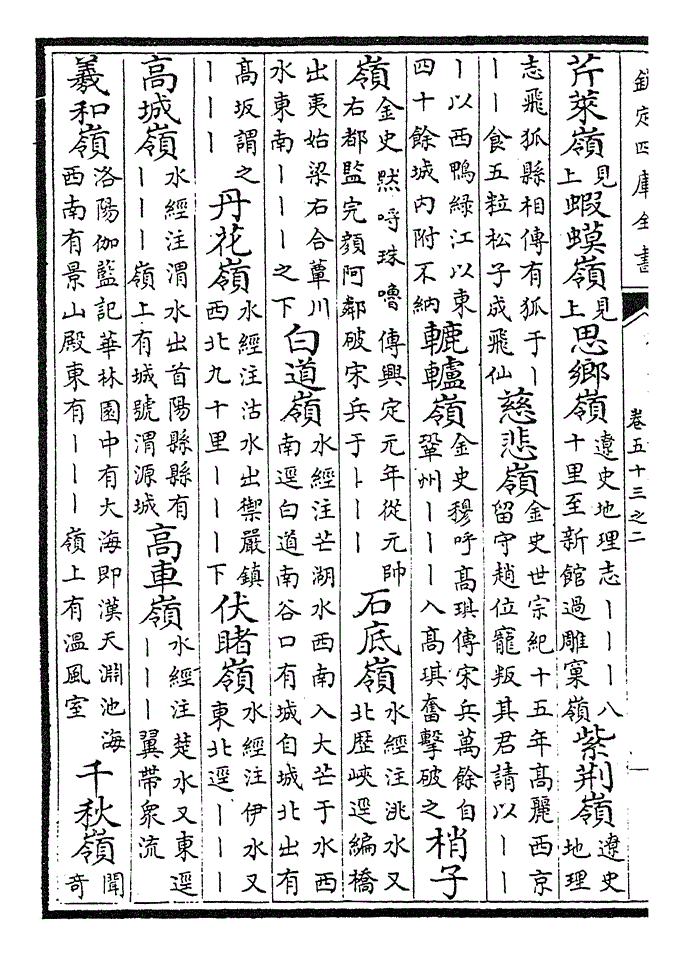 欽定四庫全書 卷五十三之二
芹萊嶺見上蝦蟆嶺見上思鄉嶺遼史地理志丨丨丨八十里至新館過雕窠嶺紫荆嶺遼史地理
志飛狐縣相傳有狐于丨丨丨食五粒松子成飛仙慈悲嶺金史世宗紀十五年高麗西京留守趙位寵叛其君請以丨丨
丨以西鴨綠江以東四十餘城内附不納轆轤嶺金史穆呼髙琪傳宋兵萬餘自鞏州丨丨丨入髙琪奮擊破之梢子
嶺金史呼珠嚕傳興定元年從元帥右都監完顔阿鄰破宋兵于丨丨丨石底嶺水經注洮水又北歴峽逕編橋
出夷姑梁右合蕈川水東南丨丨丨之下白道嶺水經注芒湖水西南入大芒于水西南逕白道南谷口有城自城北出有
髙坂謂之丨丨丨丹花嶺水經注沽水出禦嚴鎮西北九十里丨丨丨下伏睹嶺水經注伊水又東北逕丨丨丨
高城嶺水經注渭水出首陽縣縣有丨丨丨嶺上有城號渭源城高車嶺水經注楚水又東逕丨丨丨翼帶衆流
羲和嶺洛陽伽藍記華林園中有大海即漢天淵池海西南有景山殿東有丨丨丨嶺上有溫風室千秋嶺聞奇